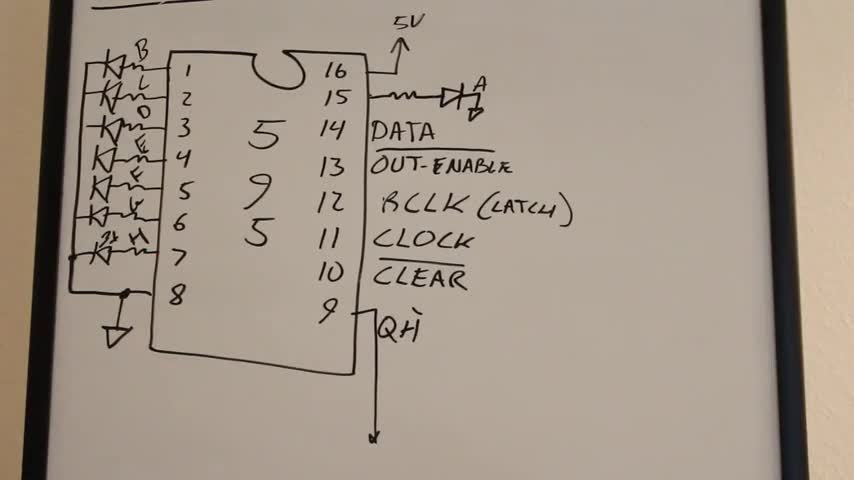 5V
B 1 16
L 2 15 A
D 3 5 14 DATA
E 4 13 OUT-ENABLE
F 5 9 12 RCLK (LATCH)
6 5 11 CLOCK
H 7 10 CLEAR
8 9 QH